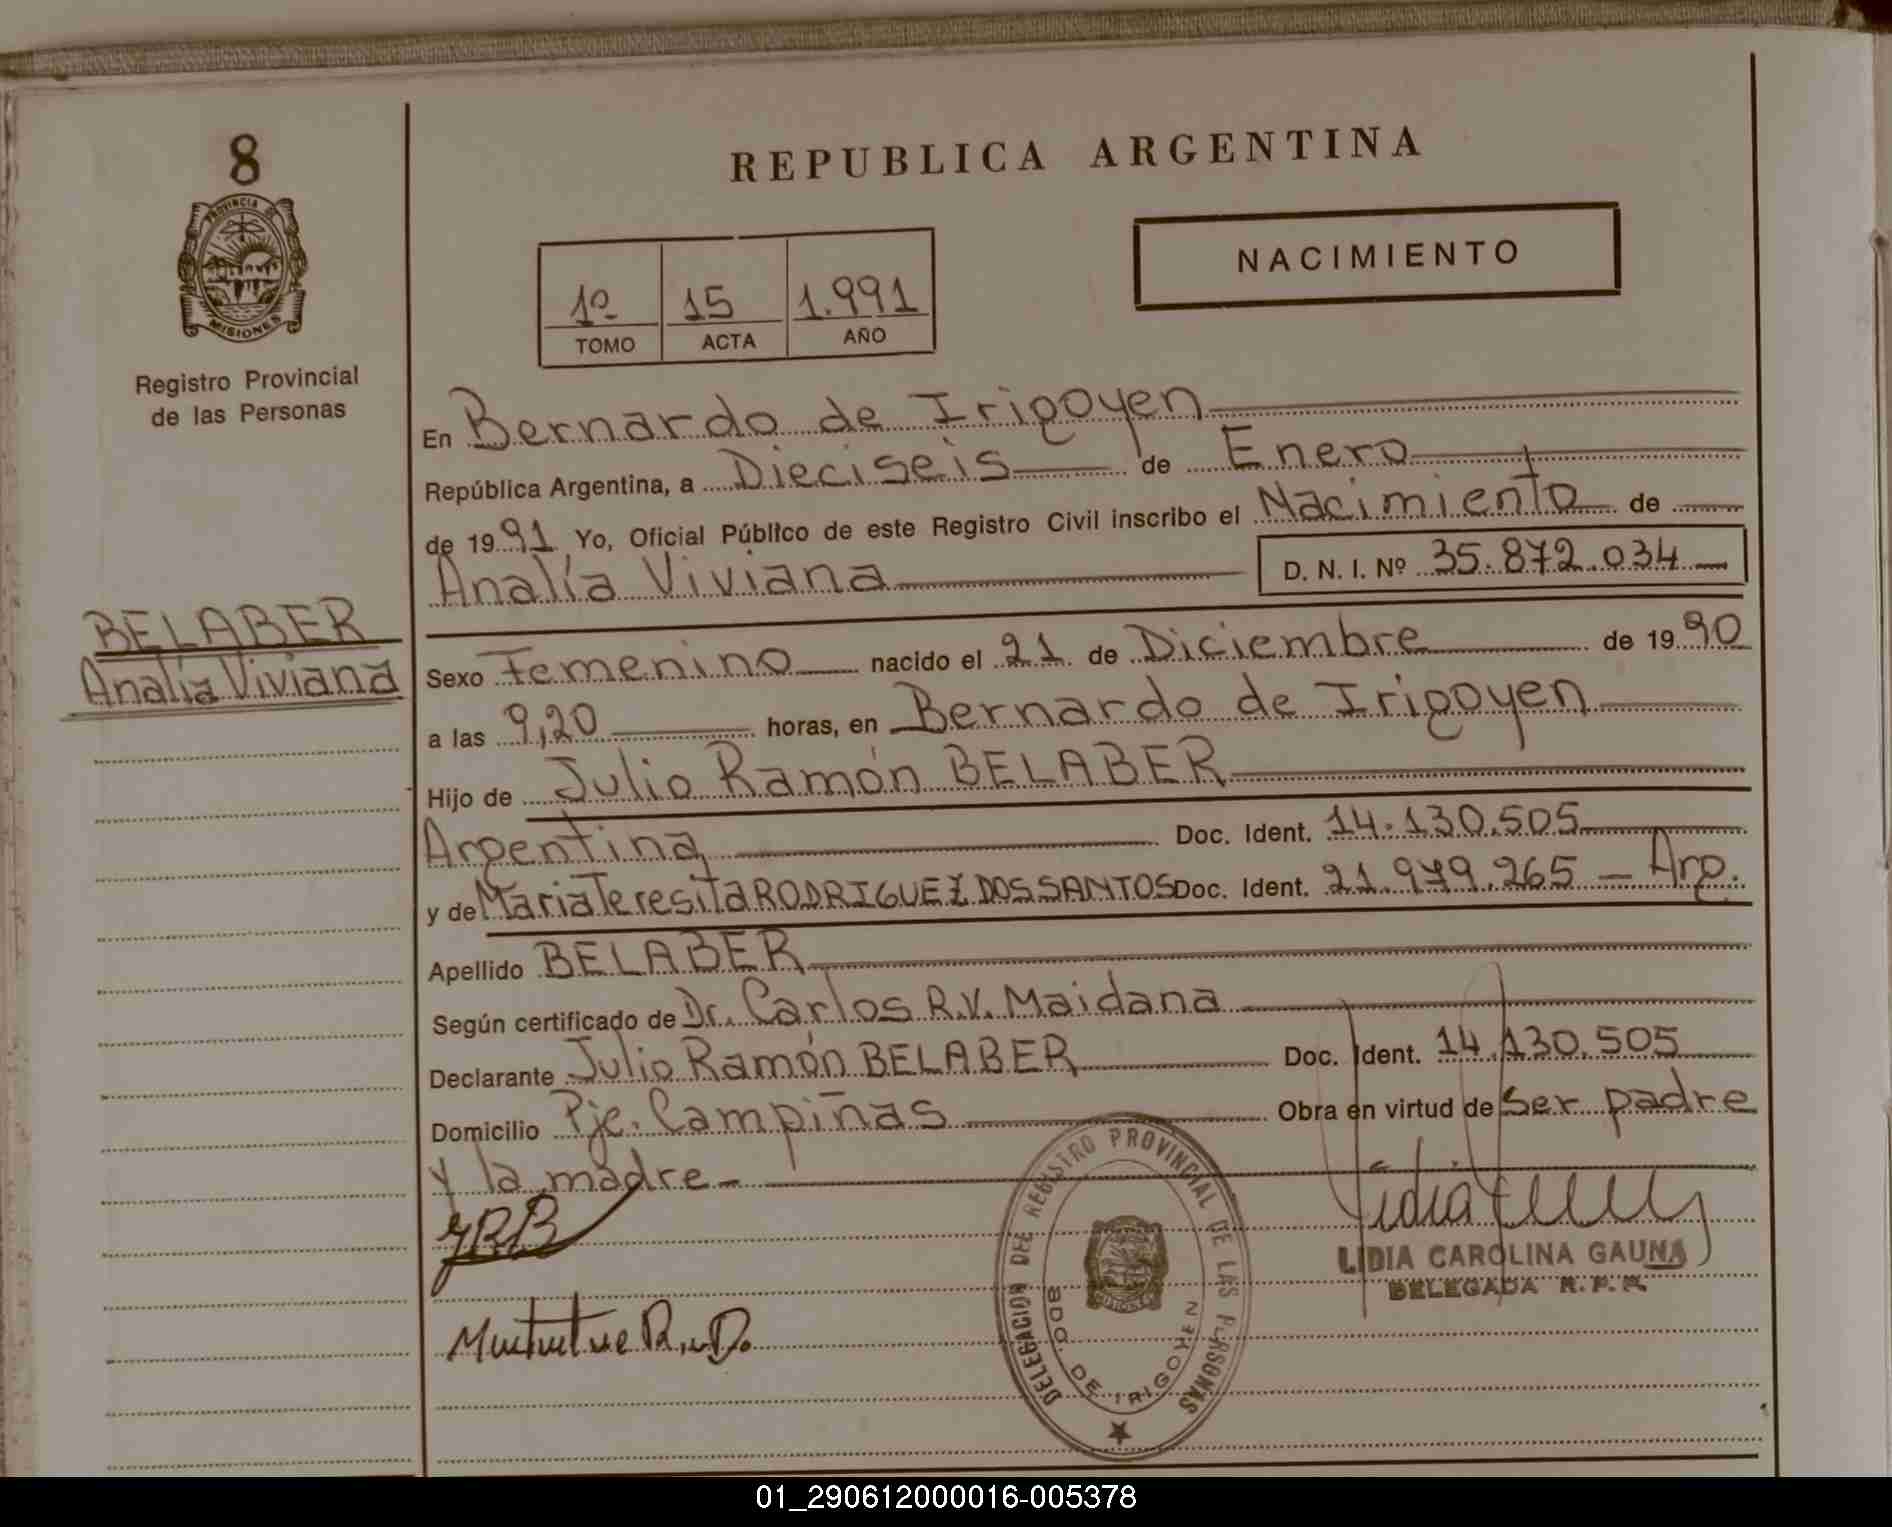 8
PROVINCIA DE
MISIONES
Registro Provincial
de las Personas
BELABER
Analía Viviana
REPUBLICA ARGENTINA
NACIMIENTO
1º 15 1.991
TOMO ACTA AÑO
En Bernardo de Irigoyen
República Argentina, a Dieciseis de Enero
de 1991 Yo, Oficial Público de este Registro Civil inscribo el Nacimiento de
Analía Viviana D. N. I. Nº 35.872.034
Sexo Femenino nacido el 21 de Diciembre de 1990
a las 9,20 horas, en Bernardo de Irigoyen
Hijo de Julio Ramón BELABER
Argentina Doc. Ident. 14.130.505
y de María Teresita RODRIGUEZ DOS SANTOS Doc. Ident. 21.979.265 - Arg.
Apellido BELABER
Según certificado de Dr. Carlos R.V. Maidana
Declarante Julio Ramón BELABER Doc. Ident. 14.130.505
Domicilio Pje. Campiñas Obra en virtud de ser padre
y la madre -
DELEGACION DEL REGISTRO PROVINCIAL DE LAS PERSONAS
BDO. DE IRIGOYEN
MISIONES
LIDIA CAROLINA GAUNA
DELEGADA R. P. P.
01_290612000016-005378